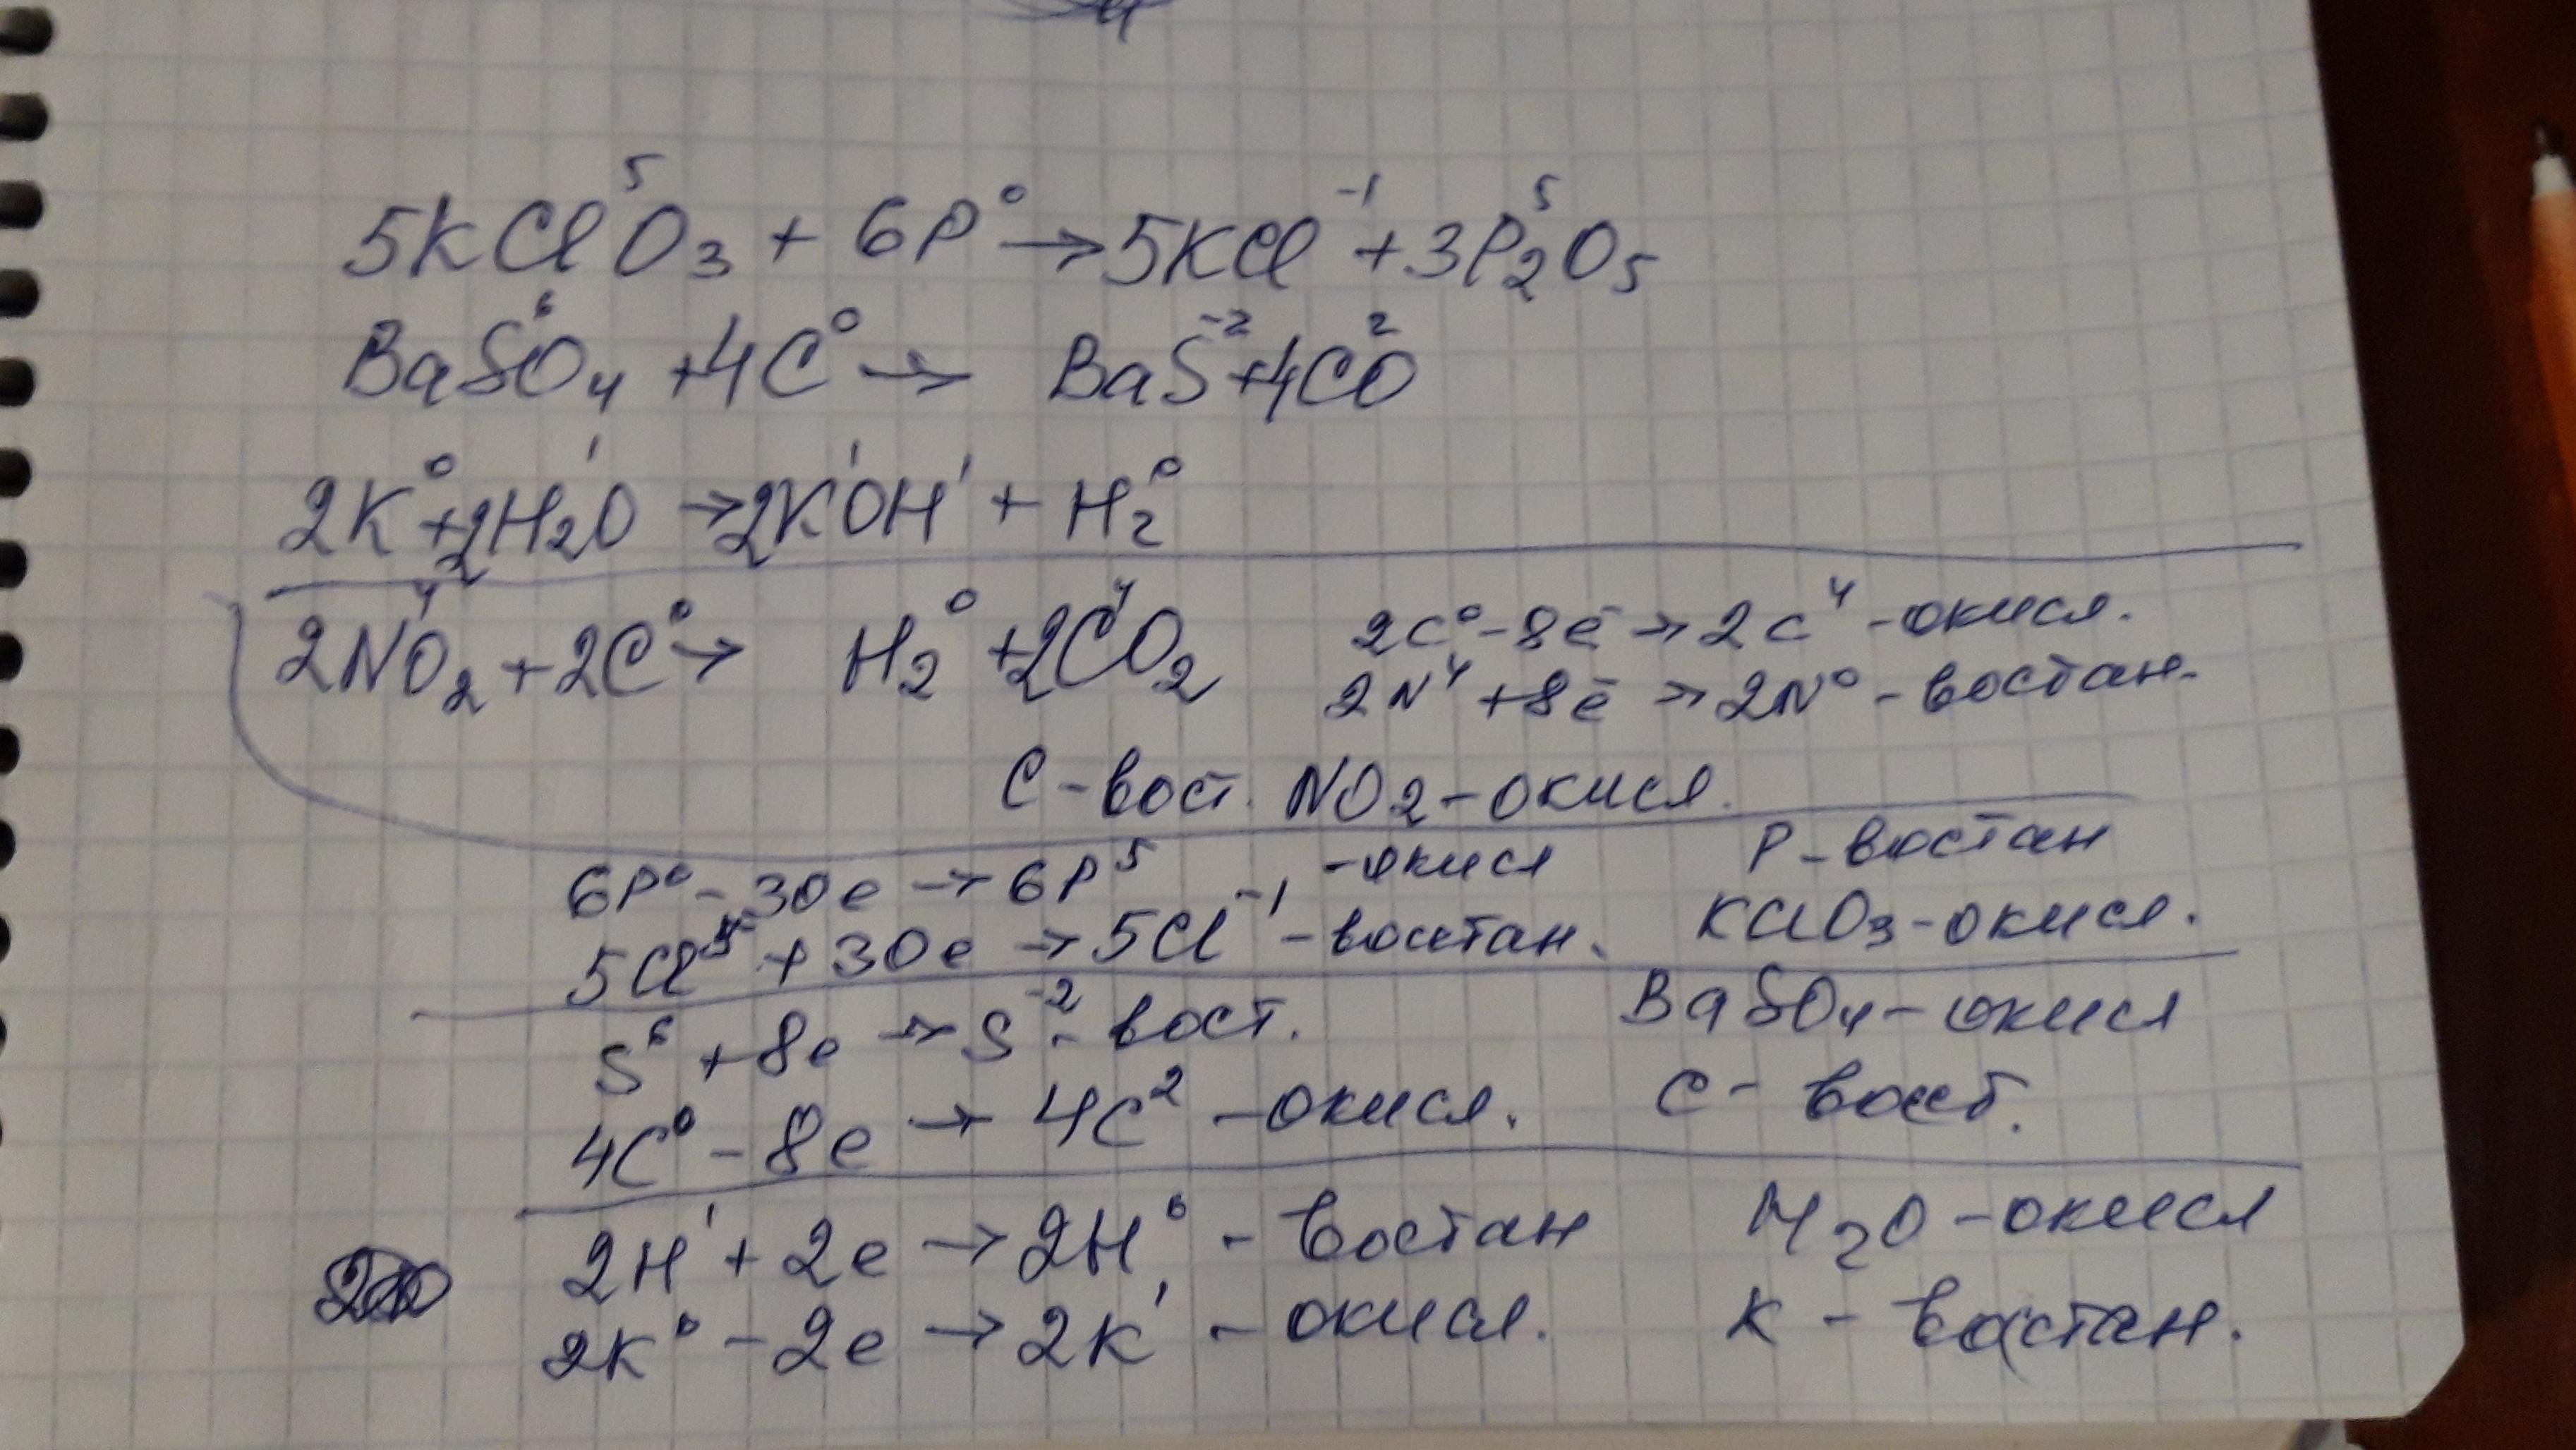 5KCl⁵O₃ + 6P⁰ → 5KCl⁻¹ + 3P₂⁵O₅
BaS⁶O₄ + 4C⁰ → BaS⁻² + 4C²O
2K⁰ + 2H₂¹O → 2K¹OH¹ + H₂⁰
2N⁴O₂ + 2C⁰ → H₂⁰ + 2C⁴O₂
2C⁰ - 8ē → 2C⁴ - окисл.
2N⁴ + 8ē → 2N⁰ - востан.
C - вост. NO2 - окисл.
6P⁰ - 30e → 6P⁵ - окисл P - востан
5Cl⁵ + 30e → 5Cl⁻¹ - востан. KClO₃ - окисл.
S⁶ + 8e → S⁻² - вост. BaSO₄ - окисл
4C⁰ - 8e → 4C² - окисл. C - вост.
2H¹ + 2e → 2H⁰ - востан H₂O - окисл
2K⁰ - 2e → 2K¹ - окисл. K - востан.